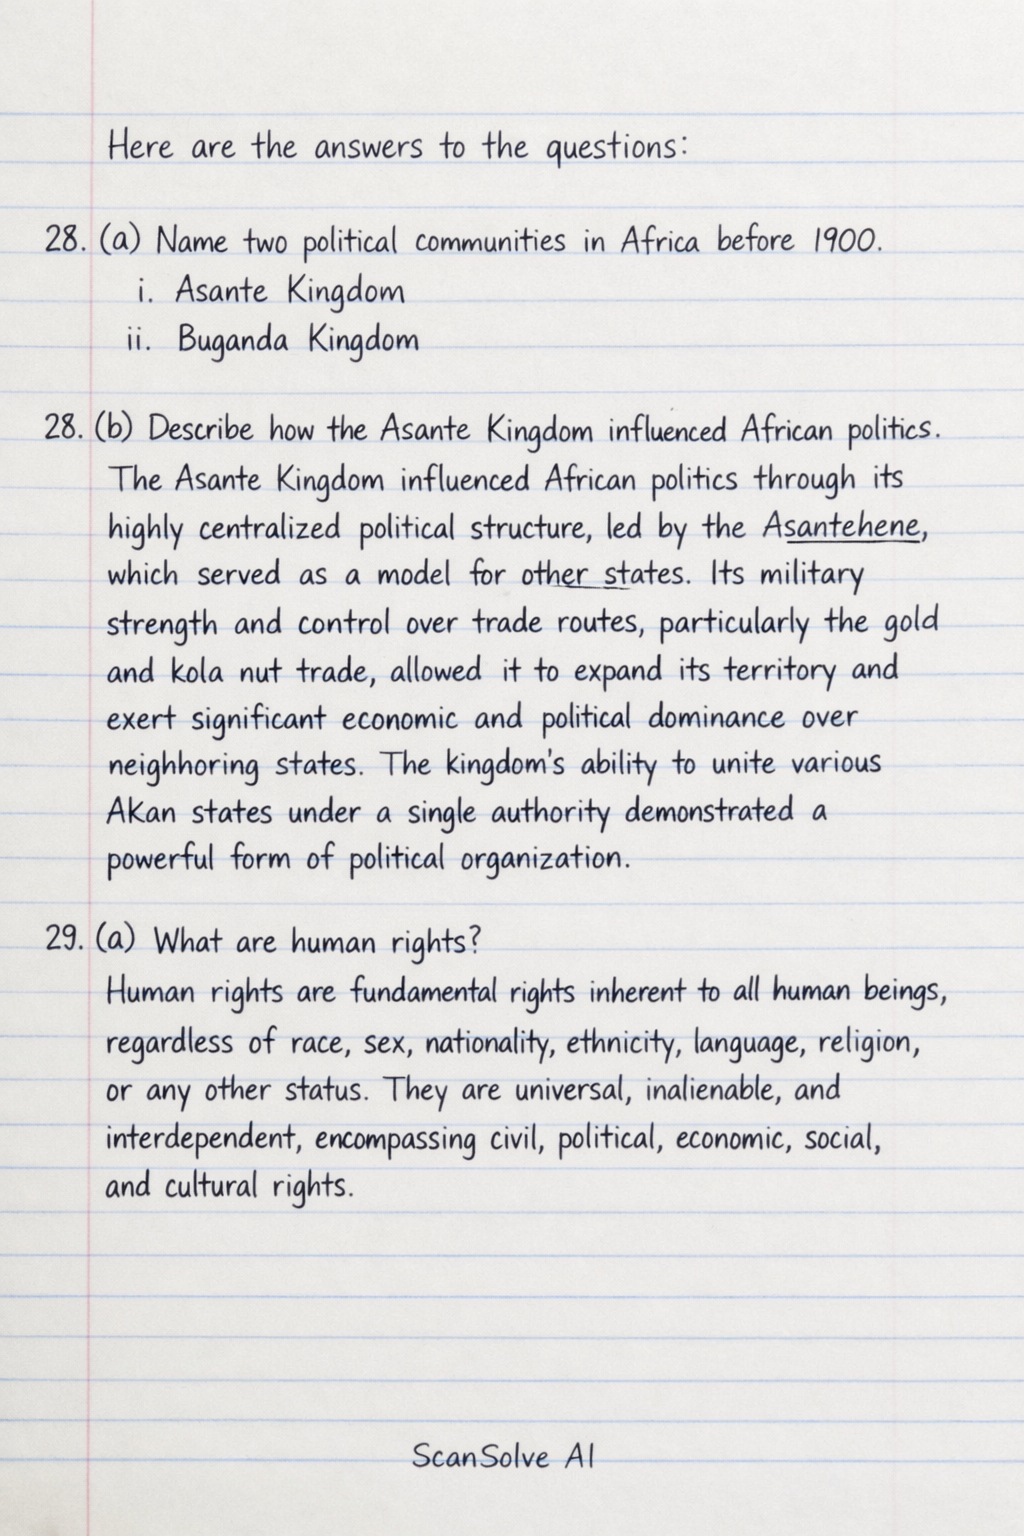 Here are the answers to the questions:
28. (a) Name two political communities in Africa before 1900.
i. Asante Kingdom
ii. Buganda Kingdom
28. (b) Describe how the Asante Kingdom influenced African politics.
The Asante Kingdom influenced African politics through its
highly centralized political structure, led by the Asantehene,
which served as a model for other states. Its military
strength and control over trade routes, particularly the gold
and kola nut trade, allowed it to expand its territory and
exert significant economic and political dominance over
neighhoring states. The kingdom's ability to unite various
AKan states under a single authority demonstrated a
powerful form of political organization.
29. (a) What are human rights?
Human rights are fundamental rights inherent to all human beings,
regardless of race, sex, nationality, ethnicity, language, religion,
or any other status. They are universal, inalienable, and
interdependent, encompassing civil, political, economic, social,
and cultural rights.
ScanSolve AI